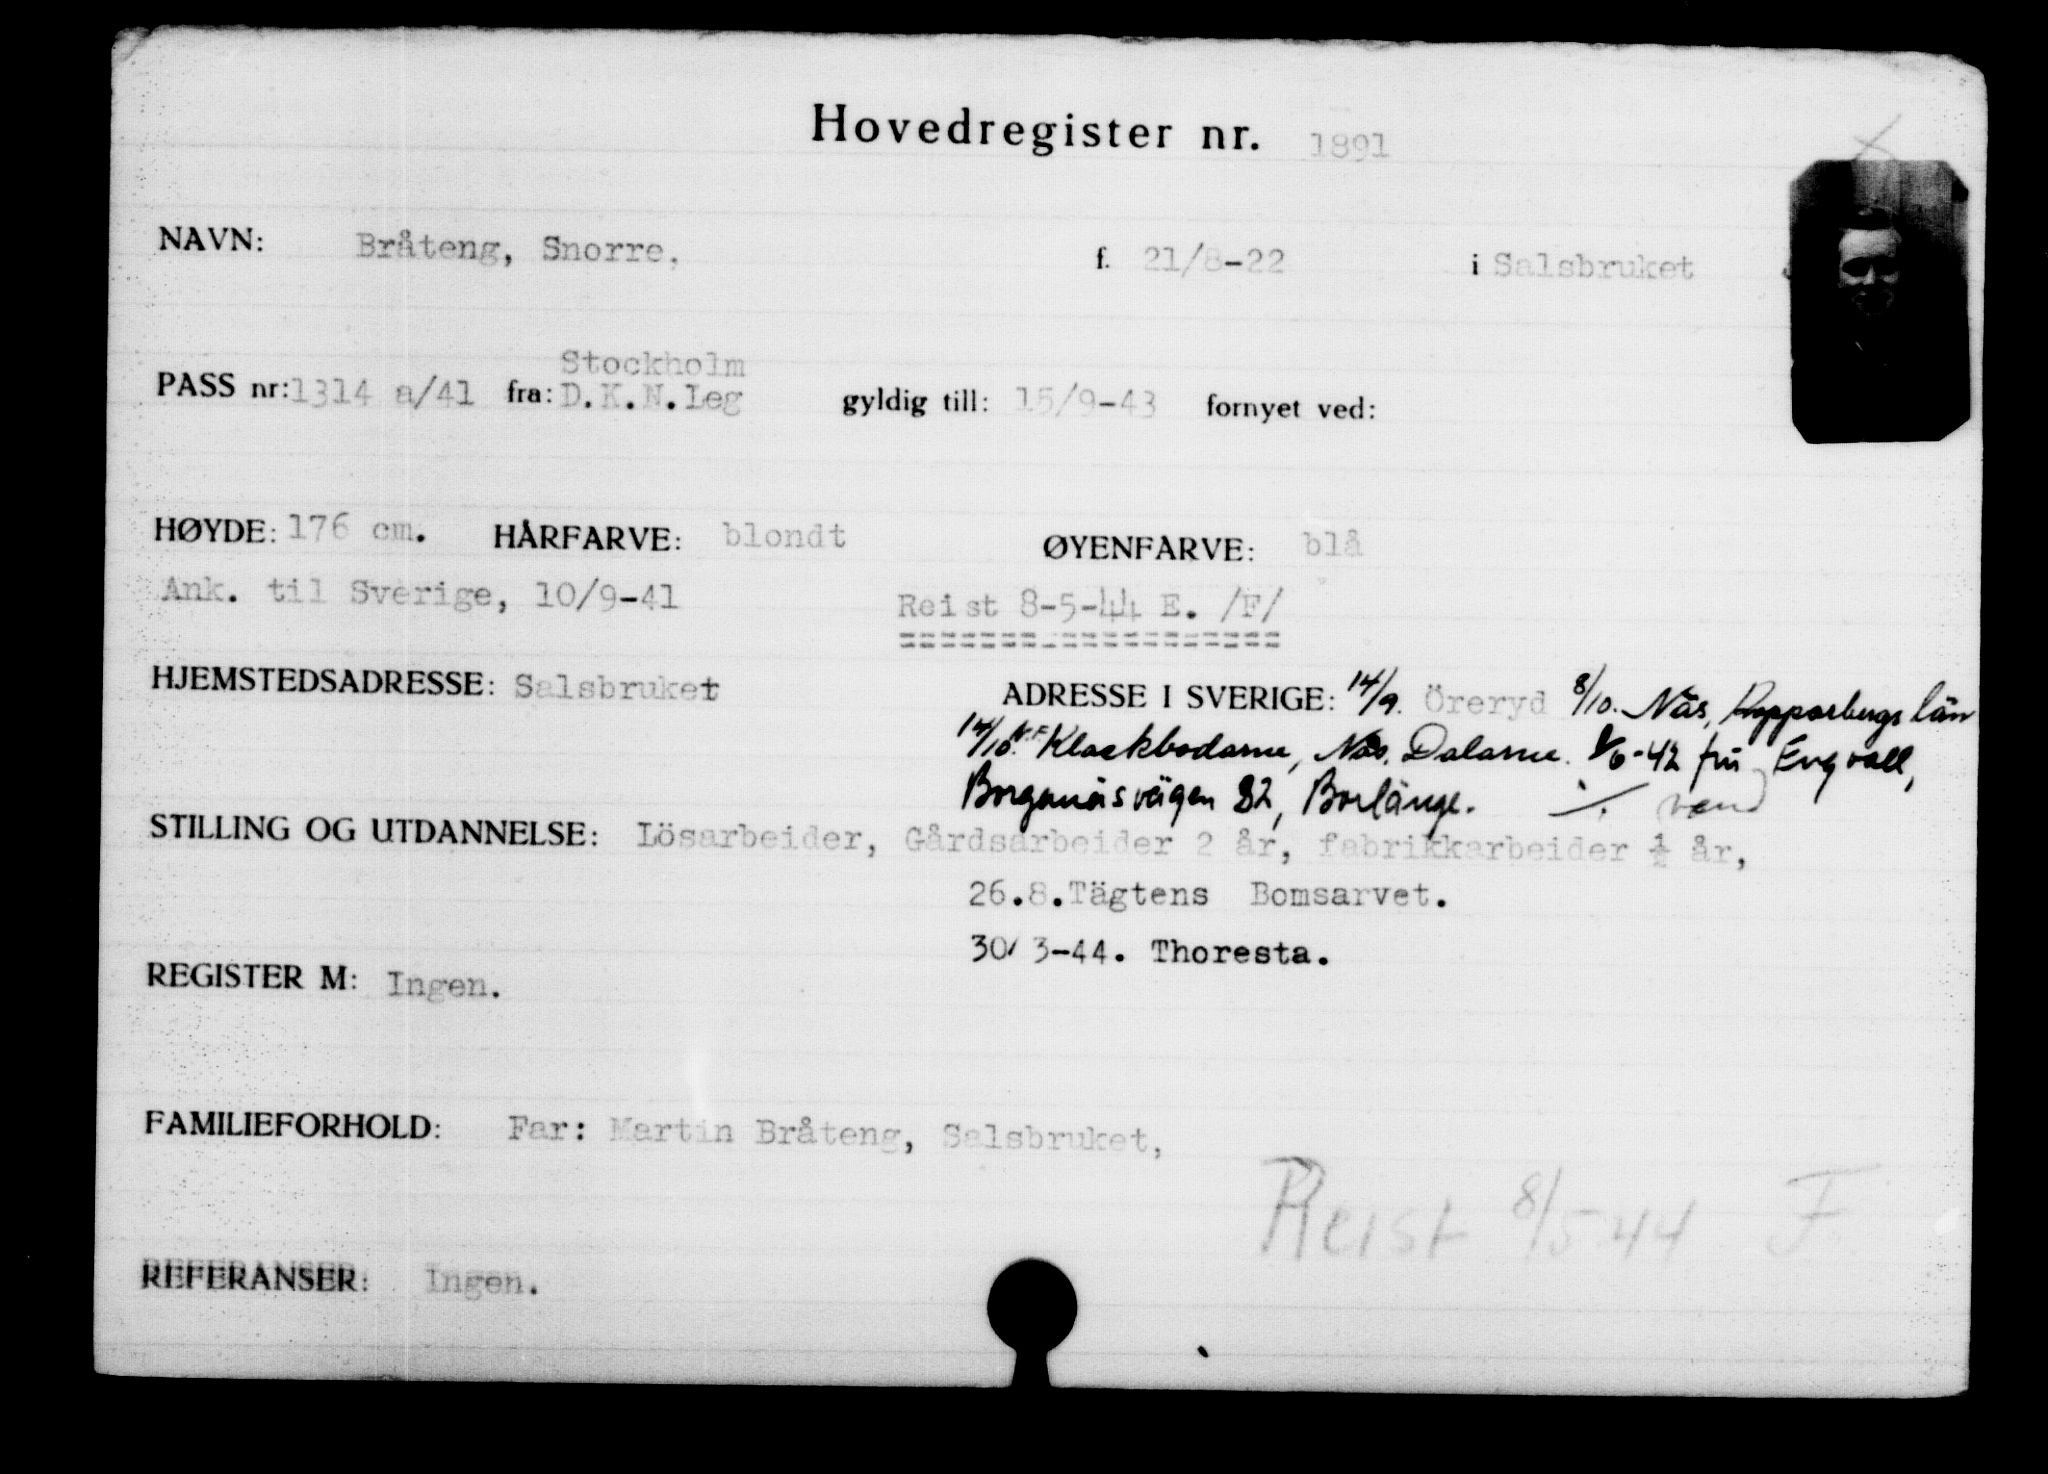 Hovedregister nr. 1891
NAVN: Bråteng, Snorre. f. 21/8-22 i Salsbruket
Stockholm
PASS nr: 1314 a/41 fra: D.K.N.Leg gyldig till: 15/9-43 fornyet ved:
HØYDE: 176 cm. HÅRFARVE: blondt ØYENFARVE: blå
Ank. til Sverige, 10/9-41 Reist 8-5-44 E. /F/
===================
HJEMSTEDSADRESSE: Salsbruket ADRESSE I SVERIGE: 14/9. Öreryd 8/10. Nås, Kopparbergs län
14/10. N.F. Klackbodarne, Nås, Dalarne. 1/6-42 fru Engvall,
Borganäsvägen 82, Borlänge. ./. vend
STILLING OG UTDANNELSE: Lösarbeider, Gårdsarbeider 2 år, fabrikkarbeider ½ år,
26.8. Tägtens Bomsarvet.
30/3-44. Thoresta.
REGISTER M: Ingen.
FAMILIEFORHOLD: Far: Martin Bråteng, Salsbruket,
Reist 8/5 44 F
REFERANSER: Ingen.